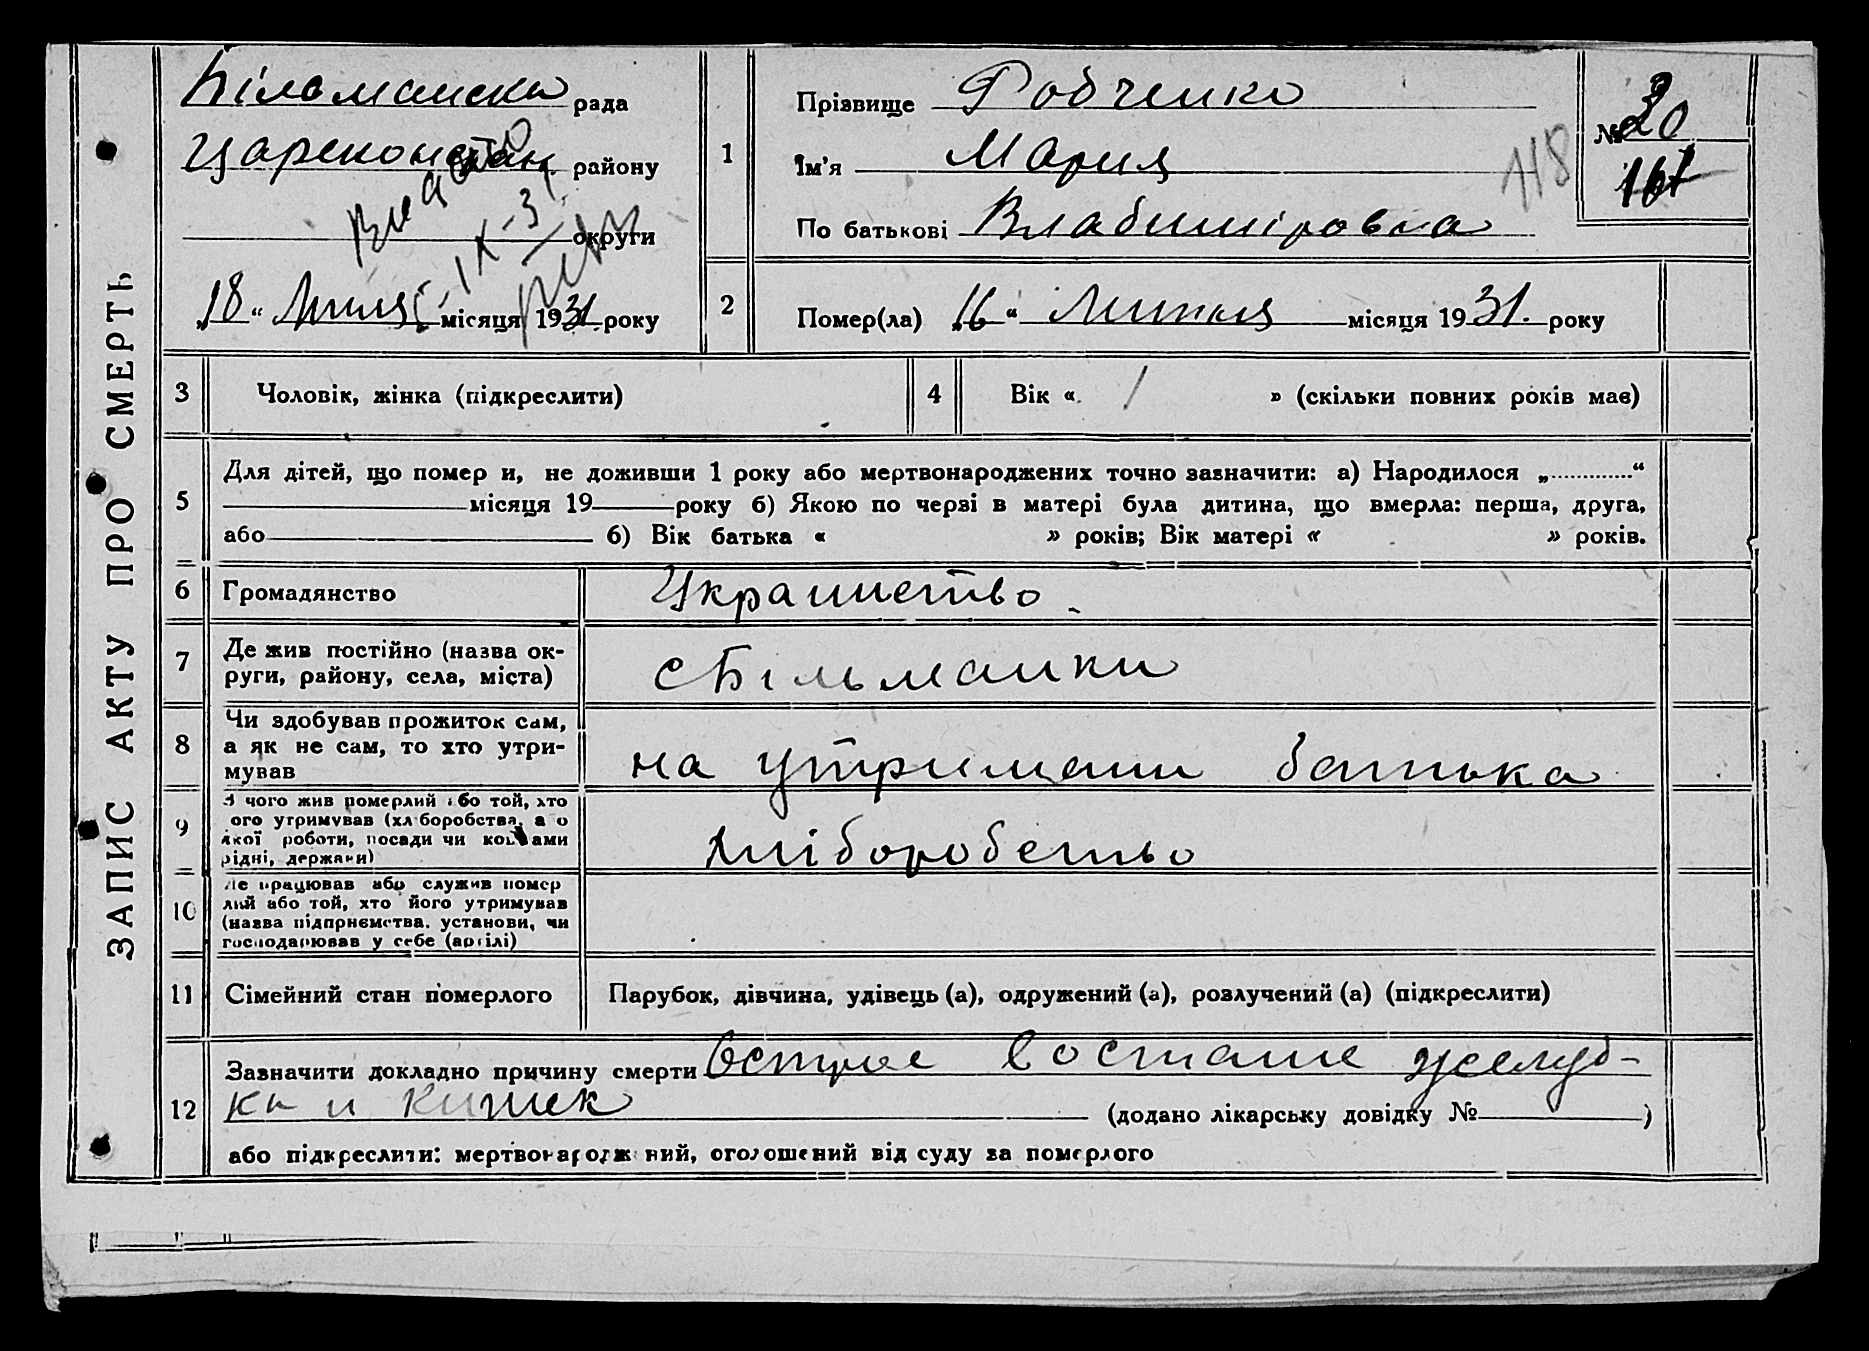 ЗАПИС АКТУ ПРО СМЕРТЬ
Більманска рада
Цареконстан. району
округи
„18“ Липця місяця 1931. року
1
Прізвище Рабченко
Ім’я Мария
По батькові Владиміровна
№ 20
161
118
2
Помер(ла) „16“ Липця місяця 1931. року
3 Чоловік, жінка (підкреслити)
4 Вік « 1 » (скільки повних років має)
5
Для дітей, що помер и, не доживши 1 року або мертвонароджених точно зазначити: а) Народилося „............“
місяця 19 року б) Якою по черзі в матері була дитина, що вмерла: перша, друга,
або 6) Вік батька « » років; Вік матері « » років.
6 Громадянство Украинство
7 Де жив постійно (назва ок-
руги, району, села, міста)
с Більманки
8 Чи здобував прожиток сам,
а як не сам, то хто утри-
мував
на утримани батька
9 З чого жив померлий або той, хто
ого утримував (хліборобства, а о
якої роботи, посади чи коштами
рідні, держави)
хліборобство
10 Де працював або служив помер
лий або той, хто його утримував
(назва підприємства, установи, чи
господарював у себе (артілі)
11 Сімейний стан померлого Парубок, дівчина, удівець (а), одружений (а), розлучений (а) (підкреслити)
12 Зазначити докладно причину смерти Острое воспаление желуд-
ка и кишек (додано лікарську довідку № )
або підкреслити: мертвонароджений, оголошений від суду за померлого